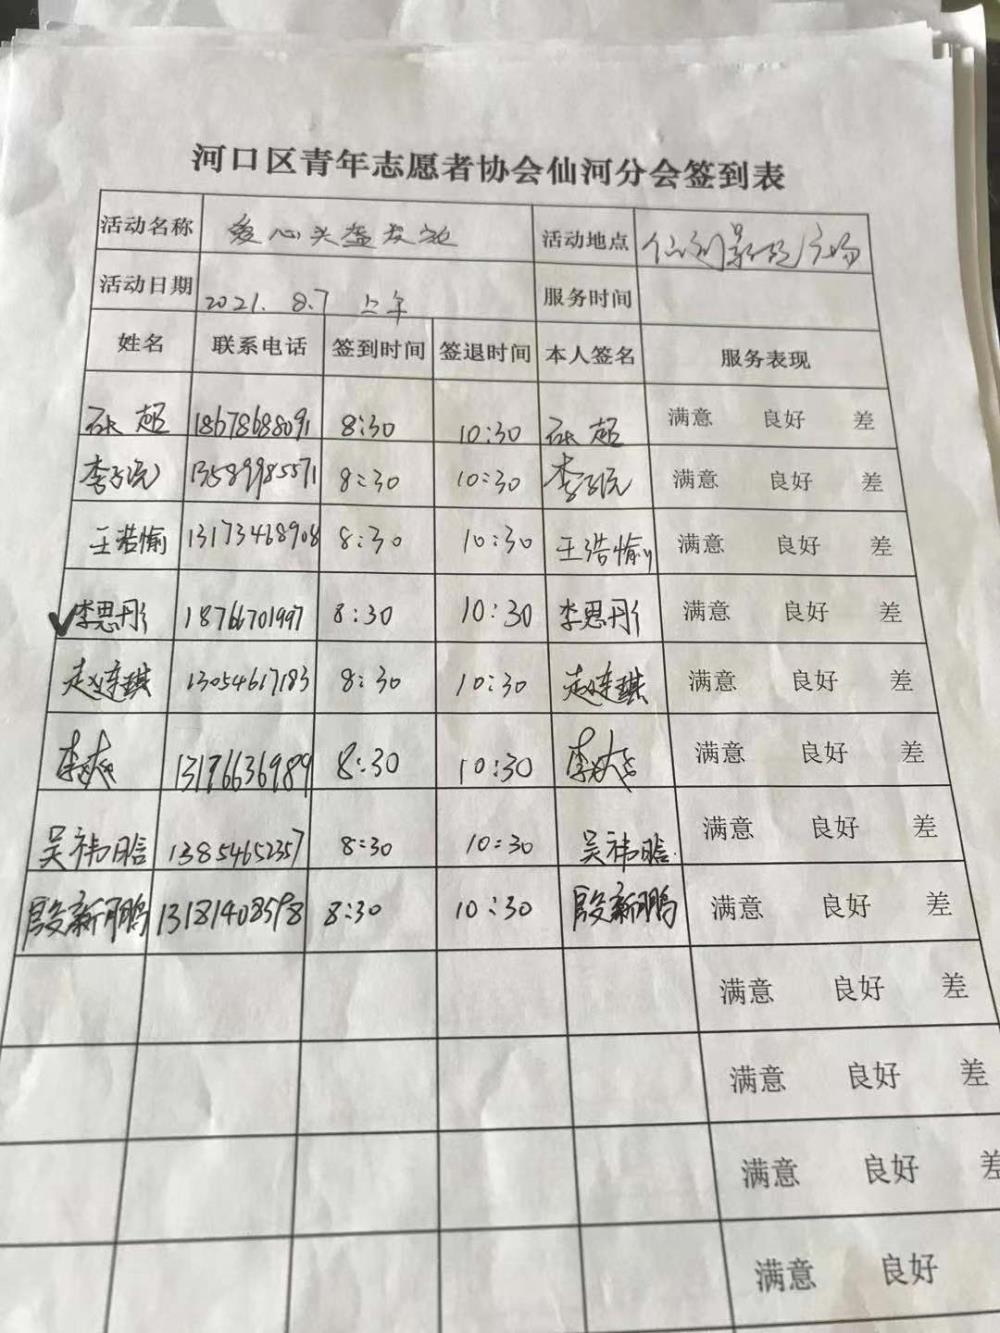 河口区青年志愿者协会仙河分会签到表
活动名称 爱心头盔发放 活动地点 仙河 广场
活动日期 2021. 8.7 上午 服务时间
姓名 联系电话 签到时间 签退时间 本人签名 服务表现
超 18678688091 8:30 10:30 超 满意 良好 差
李 13589985571 8:30 10:30 李 满意 良好 差
王浩愉 13173468908 8:30 10:30 王浩愉 满意 良好 差
李思彤 18766701997 8:30 10:30 李思彤 满意 良好 差
赵连琪 13054617183 8:30 10:30 赵连琪 满意 良好 差
李 13176636989 8:30 10:30 李 满意 良好 差
吴祎晗 13854652357 8:30 10:30 吴祎晗 满意 良好 差
殷新鹏 13181408598 8:30 10:30 殷新鹏 满意 良好 差
满意 良好 差
满意 良好 差
满意 良好 差
满意 良好